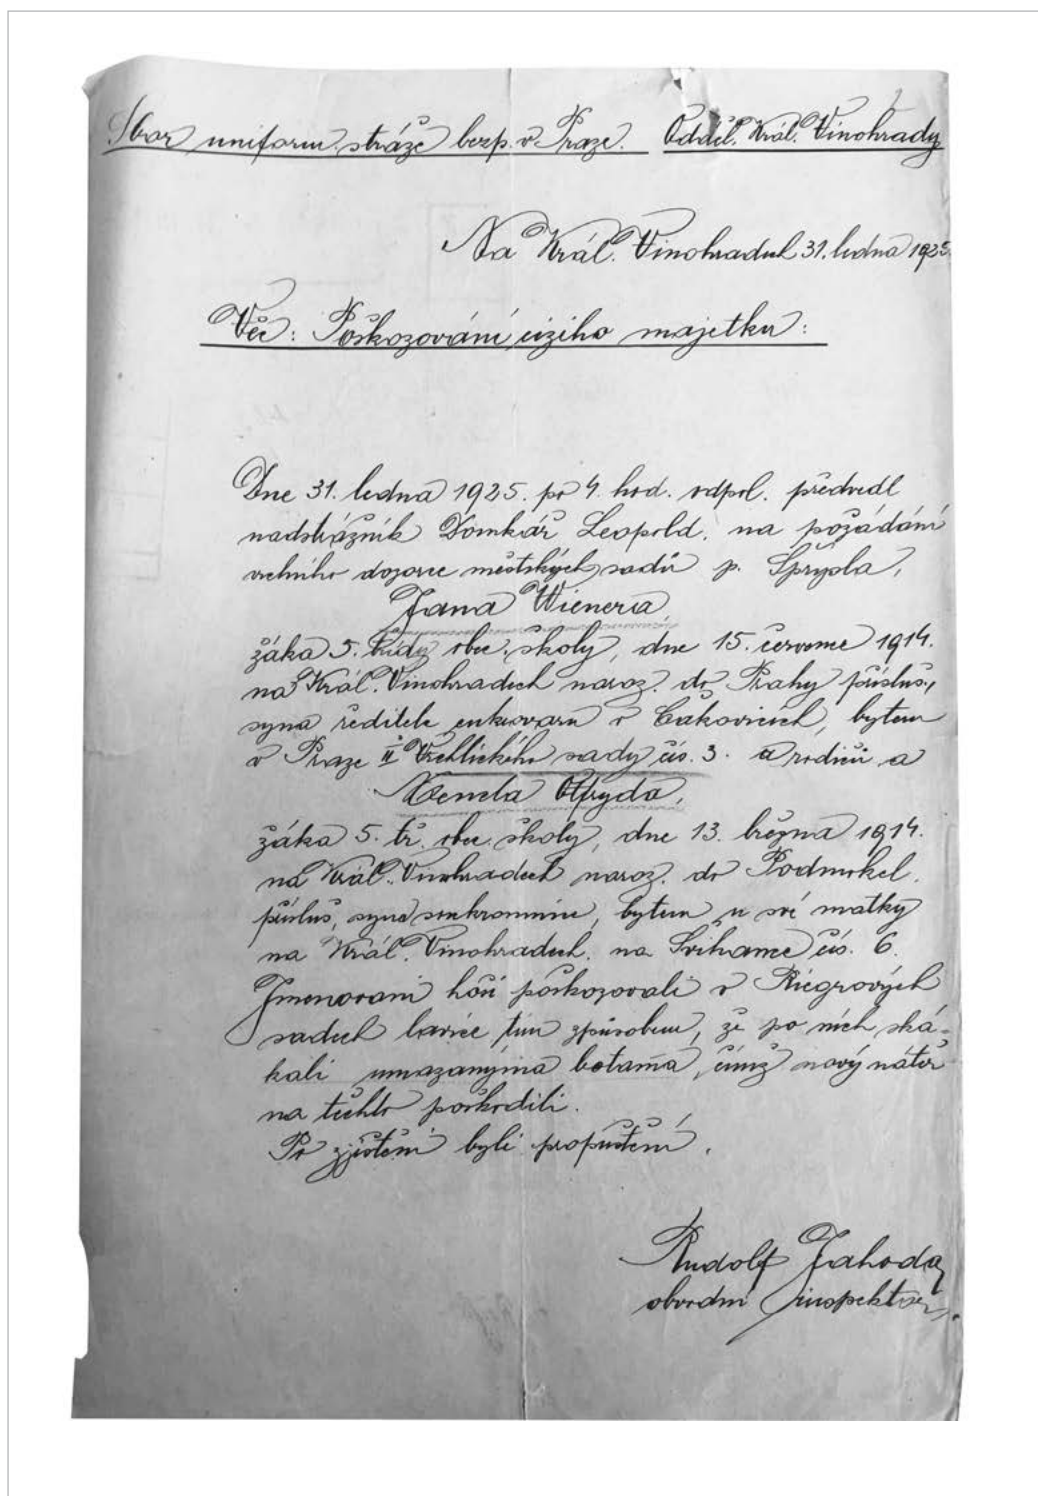 Sbor uniform. stráže bezp. v Praze. Odděl. Král. Vinohrady
Na Král. Vinohradech 31. ledna 1925.
Věc: Poškozování cizího majetku:
Dne 31. ledna 1925. po 4. hod. odpol. předvedl
nadstrážník Domkář Leopold, na požádání
vrchního dozorce městských sadů p. Šprysla,
Jana Wienera
žáka 5. třídy obec. školy, dne 15. července 1914.
na Král. Vinohradech naroz. do Prahy přísluš.,
syna ředitele cukrovaru v Čakovicích, bytem
v Praze II Vrchlického sady čís. 3. u rodičů a
žáka 5. tř. obec. školy, dne 13. března 1914.
na Král. Vinohradech naroz. do Podmokel
přísluš, syna soukromnice, bytem u své matky
na Král. Vinohradech, na Švihance čís. 6.
Jmenovaní hoši poškozovali v Riegrových
sadech lavice tím způsobem, že po nich ská-
kali umazanýma botama, čímž nový nátěr
na těchto poškodili.
Po zjištění byli propuštěni.
Rudolf Jahoda
obvodní inspektor.